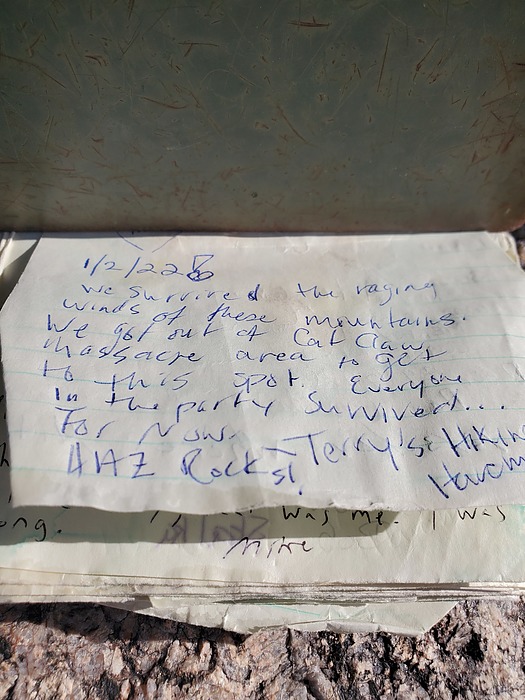 1/2/22
We survived the raging
winds of these mountains.
We got out of Cat Claw
Massacre area to get
to this spot. Everyone
in the party survived...
For Now.
—Terry's Hikin
HAZ Rocks!
ong.
was me. I was
Mine